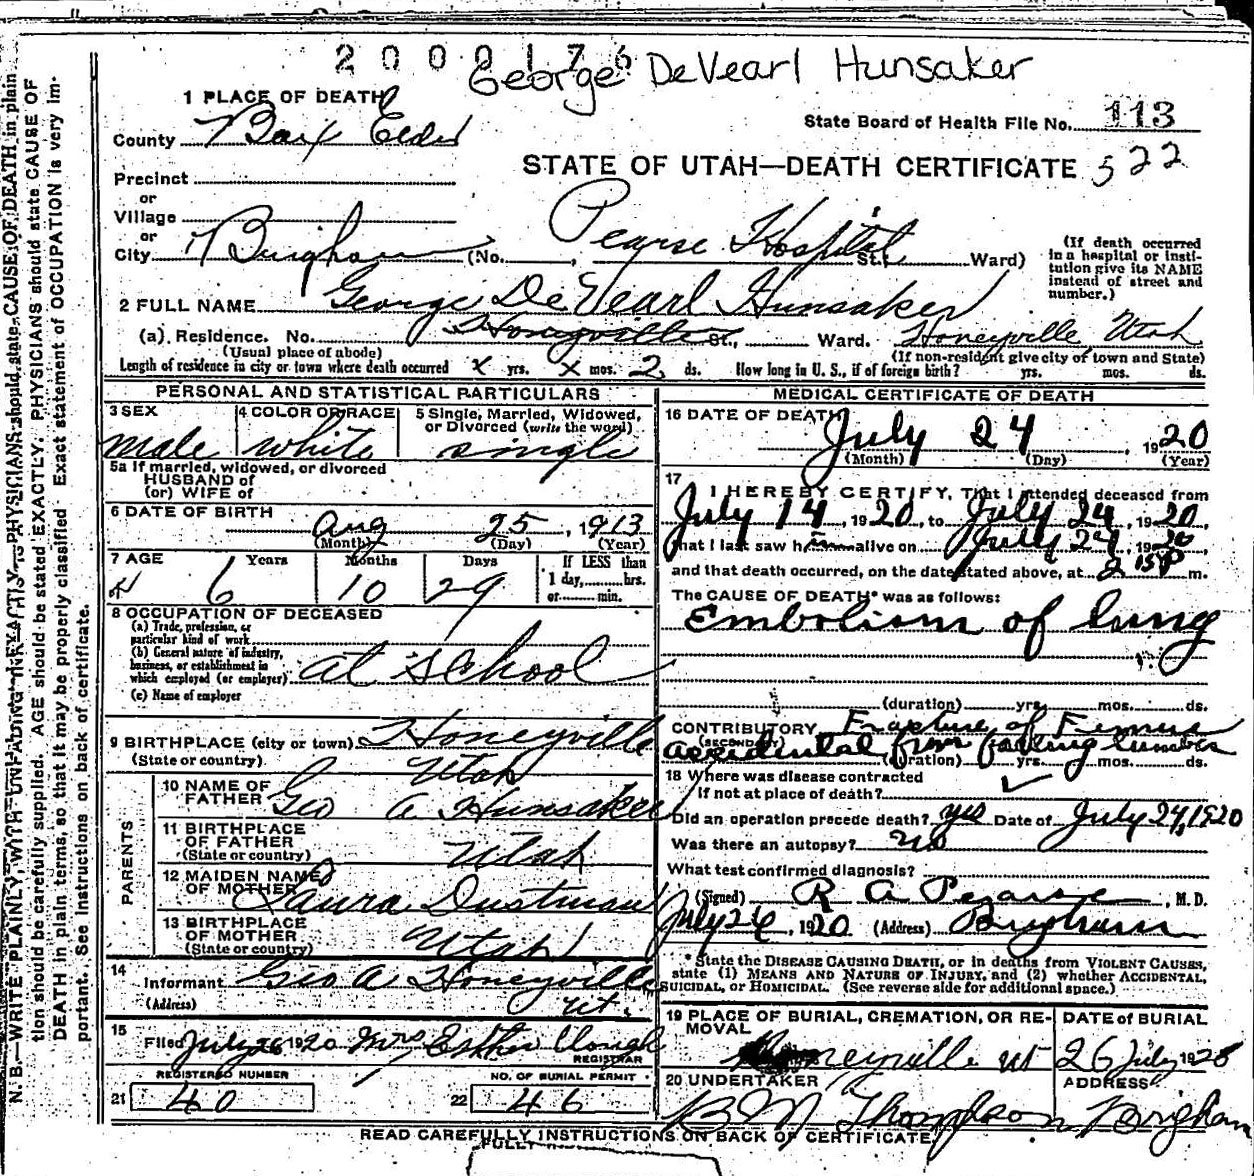 2000176
George DeVearl Hunsaker
1 PLACE OF DEATH
County Box Elder
State Board of Health File No. 113
STATE OF UTAH—DEATH CERTIFICATE 522
Precinct
or
Village
or
City Brigham (No. Pearse Hospital St., Ward)
(If death occurred in a hospital or institution give its NAME instead of street and number.)
2 FULL NAME George DeVearl Hunsaker
(a) Residence. No. Honeyville St., Ward. Honeyville Utah
(Usual place of abode) (If non-resident give city of town and State)
Length of residence in city or town where death occurred x yrs. x mos. 2 ds. How long in U. S., if of foreign birth? yrs. mos. ds.
PERSONAL AND STATISTICAL PARTICULARS
3 SEX
male
4 COLOR OR RACE
white
5 Single, Married, Widowed, or Divorced (write the word)
single
5a If married, widowed, or divorced
HUSBAND of
(or) WIFE of
6 DATE OF BIRTH
Aug 25, 1913
(Month) (Day) (Year)
7 AGE Years Months Days If LESS than
6 10 29 1 day, hrs.
or min.
8 OCCUPATION OF DECEASED
(a) Trade, profession, or
particular kind of work
(b) General nature of industry,
business, or establishment in
which employed (or employer) at school
(c) Name of employer
9 BIRTHPLACE (city or town) Honeyville
(State or country) Utah
PARENTS
10 NAME OF
FATHER Geo A Hunsaker
11 BIRTHPLACE
OF FATHER
(State or country) Utah
12 MAIDEN NAME
OF MOTHER Laura Dustman
13 BIRTHPLACE
OF MOTHER
(State or country) Utah
14
Informant Geo A Honeyville
(Address) Ut.
15
Filed July 26 1920 Mrs Esther Clough
REGISTRAR
REGISTERED NUMBER NO. OF BURIAL PERMIT
21 40 22 46
MEDICAL CERTIFICATE OF DEATH
16 DATE OF DEATH
July 24, 1920
(Month) (Day) (Year)
17
I HEREBY CERTIFY, That I attended deceased from
July 14, 1920, to July 24, 1920,
that I last saw him alive on July 24, 1920
and that death occurred, on the date stated above, at 2 15 P m.
The CAUSE OF DEATH* was as follows:
Embolism of lung
(duration) yrs. mos. ds.
CONTRIBUTORY Fracture of Femur
(SECONDARY) accidental from falling lumber
(duration) yrs. mos. ds.
18 Where was disease contracted
If not at place of death?
Did an operation precede death? yes Date of July 24, 1920
Was there an autopsy? no
What test confirmed diagnosis?
(Signed) R A Pearse, M. D.
July 26, 1920 (Address) Brigham
*State the DISEASE CAUSING DEATH, or in deaths from VIOLENT CAUSES,
state (1) MEANS AND NATURE OF INJURY, and (2) whether ACCIDENTAL,
SUICIDAL, or HOMICIDAL. (See reverse side for additional space.)
19 PLACE OF BURIAL, CREMATION, OR REMOVAL
Honeyville Ut
DATE of BURIAL
26 July 1920
20 UNDERTAKER
B M Thompson
ADDRESS
Brigham
READ CAREFULLY INSTRUCTIONS ON BACK OF CERTIFICATE.
FULLY
N. B.—WRITE PLAINLY, WITH UNFADING INK
tion should be carefully supplied. AGE should be stated EXACTLY. PHYSICIANS should state CAUSE OF
DEATH in plain terms, so that it may be properly classified. Exact statement of OCCUPATION is very im-
portant. See instructions on back of certificate.